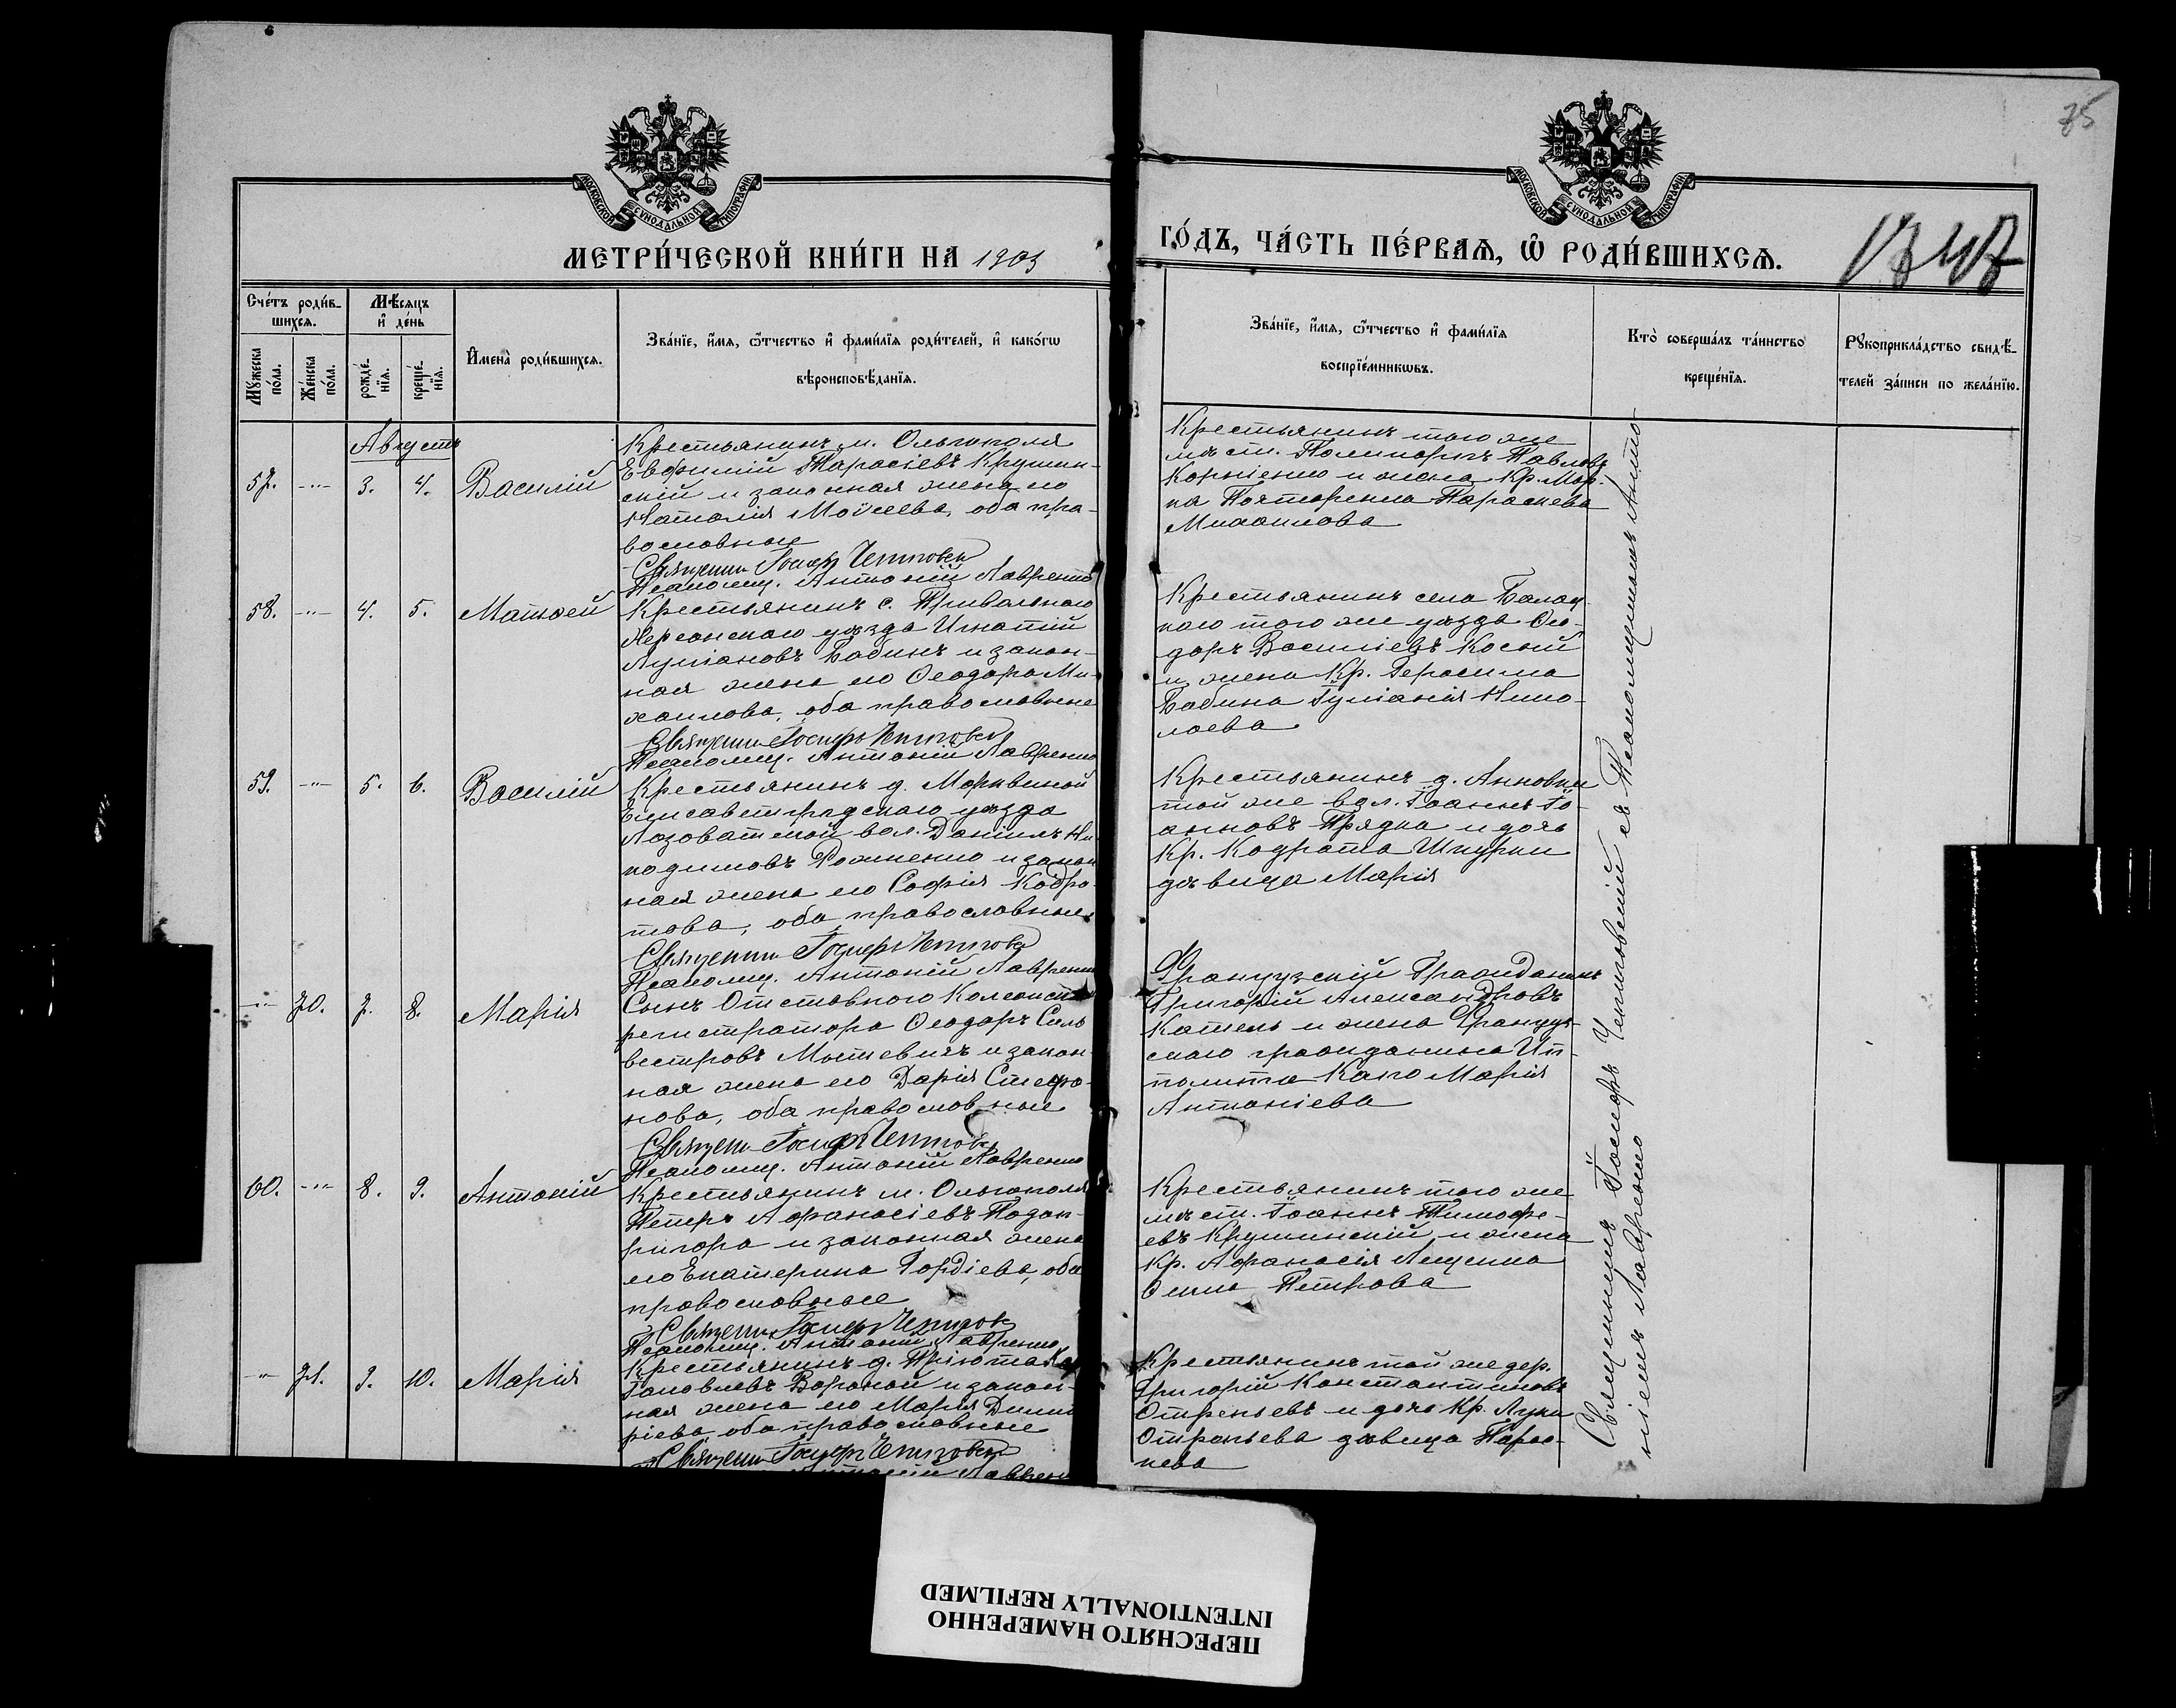 75
МОСКОВСКОЙ СѴНОДАЛЬНОЙ ТИПОГРАФІИ
МОСКОВСКОЙ СѴНОДАЛЬНОЙ ТИПОГРАФІИ
МЕТРИ́ЧЕСКОЙ КНИ́ГИ НА 1903
ГО́ДЪ, ЧА́СТЬ ПЕ́РВАѦ, Ѿ РОДИ́ВШИХСѦ.
Сче́тъ роди́в-
шихсѧ.
Мѣ́сѧцъ
и҆ де́нь
Мꙋ́жеска
по́ла.
Же́нска
по́ла.
рожде́-
нїѧ.
креще́-
нїѧ.
И҆мена̀ роди́вшихсѧ.
Зва́нїе, и҆́мѧ, ѻ҆́тчество и҆ фами́лїѧ роди́телей, и҆ како́гѡ
вѣроисповѣ́данїѧ.
Зва́нїе, и҆́мѧ, ѻ҆́тчество и҆ фами́лїѧ
воспрїе́мникѡвъ.
Кто̀ соверша́лъ та́инство
креще́нїѧ.
Рꙋкоприкла́дство свидѣ́-
телей за́писи по жела́нїю.
Августъ
57. -"- 3. 4. Василій
Крестьянинъ м. Ольгополя
Евфимій Тарасіевъ Крушин-
скій и законная жена его
Наталія Моѵсеева, оба пра-
вославные
Священникъ Іосифъ Чепиговскій
Псаломщ. Антоній Лавренко
Крестьянинъ того же
мѣст. Поликарпъ Павловъ
Корніенко и жена Кр. Мар-
ка Параскева
Михаилова
58. -"- 4. 5. Матѳей
Крестьянинъ с. Привольнаго
Херсонскаго уѣзда Игнатій
Луліановъ Бабинъ и закон-
ная жена его Ѳеодора Ми-
хаилова, оба православные
Священникъ Іосифъ Чепиговскій
Псаломщ. Антоній Лавренко
Крестьянинъ села Балац-
каго того же уѣзда Ѳео-
доръ Василіевъ Косый
и жена Кр. Герасима
Бабина Іуліанія Нико-
лаева
59. -"- 5. 6. Василій
Крестьянинъ д. Марквиной
Елисаветградскаго уѣзда
Лозоватской вол. Даніилъ Ни-
кодимовъ и закон
ная жена его Софія Кодра-
това, оба православные
Священникъ Іосифъ Чепиговскій
Псаломщ. Антоній Лавренко
Крестьянинъ д. Анновки
той же вол. Іоаннъ Іо-
анновъ Прядка и дочь
Кр. Кодрата Шкурки
дѣвица Марія
-"- 70. 7. 8. Марія
Сынъ Отставного Коллежск.
регистратора Ѳеодоръ Силь
вестровъ и закон-
ная жена его Дарія Стефа-
нова, оба православные
Священникъ Іосифъ Чепиговскій
Псаломщ. Антоній Лавренко
Французскій Гражданинъ
Григорій Александровъ
и жена Француз-
скаго гражданина Ип-
полита Капо Марія
Антоніева
60. -"- 8. 9. Антоній
Крестьянинъ м. Ольгополя
Петръ Аѳанасіевъ Подоп-
ригора и законная жена
его Екатерина Гордіева, оба
православные
Священникъ Іосифъ Чепиговскій
Псаломщ. Антоній Лавренко
Крестьянинъ того же
мѣст. Іоаннъ Тимофе-
евъ Крушинскій и жена
Кр. Аѳанасія Лещенка
Петрова
-"- 71. 9. 10. Марія
Крестьянинъ д. Пріюта
Іаковлевъ Вороной и закон-
ная жена его Марія Дими
ріева, оба православные
Священникъ Іосифъ Чепиговскій
Антоній Лавренко
Крестьянинъ той же дер.
Григорій Константиновъ
Отрепьевъ и дочь Кр. Луки
Отрепьева дѣвица Парас-
кева
Священникъ Іосифъ Чепиговскій съ Псаломщикомъ Анто
ніемъ Лавренко
ПЕРЕСНЯТО НАМЕРЕННО
INTENTIONALLY REFILMED